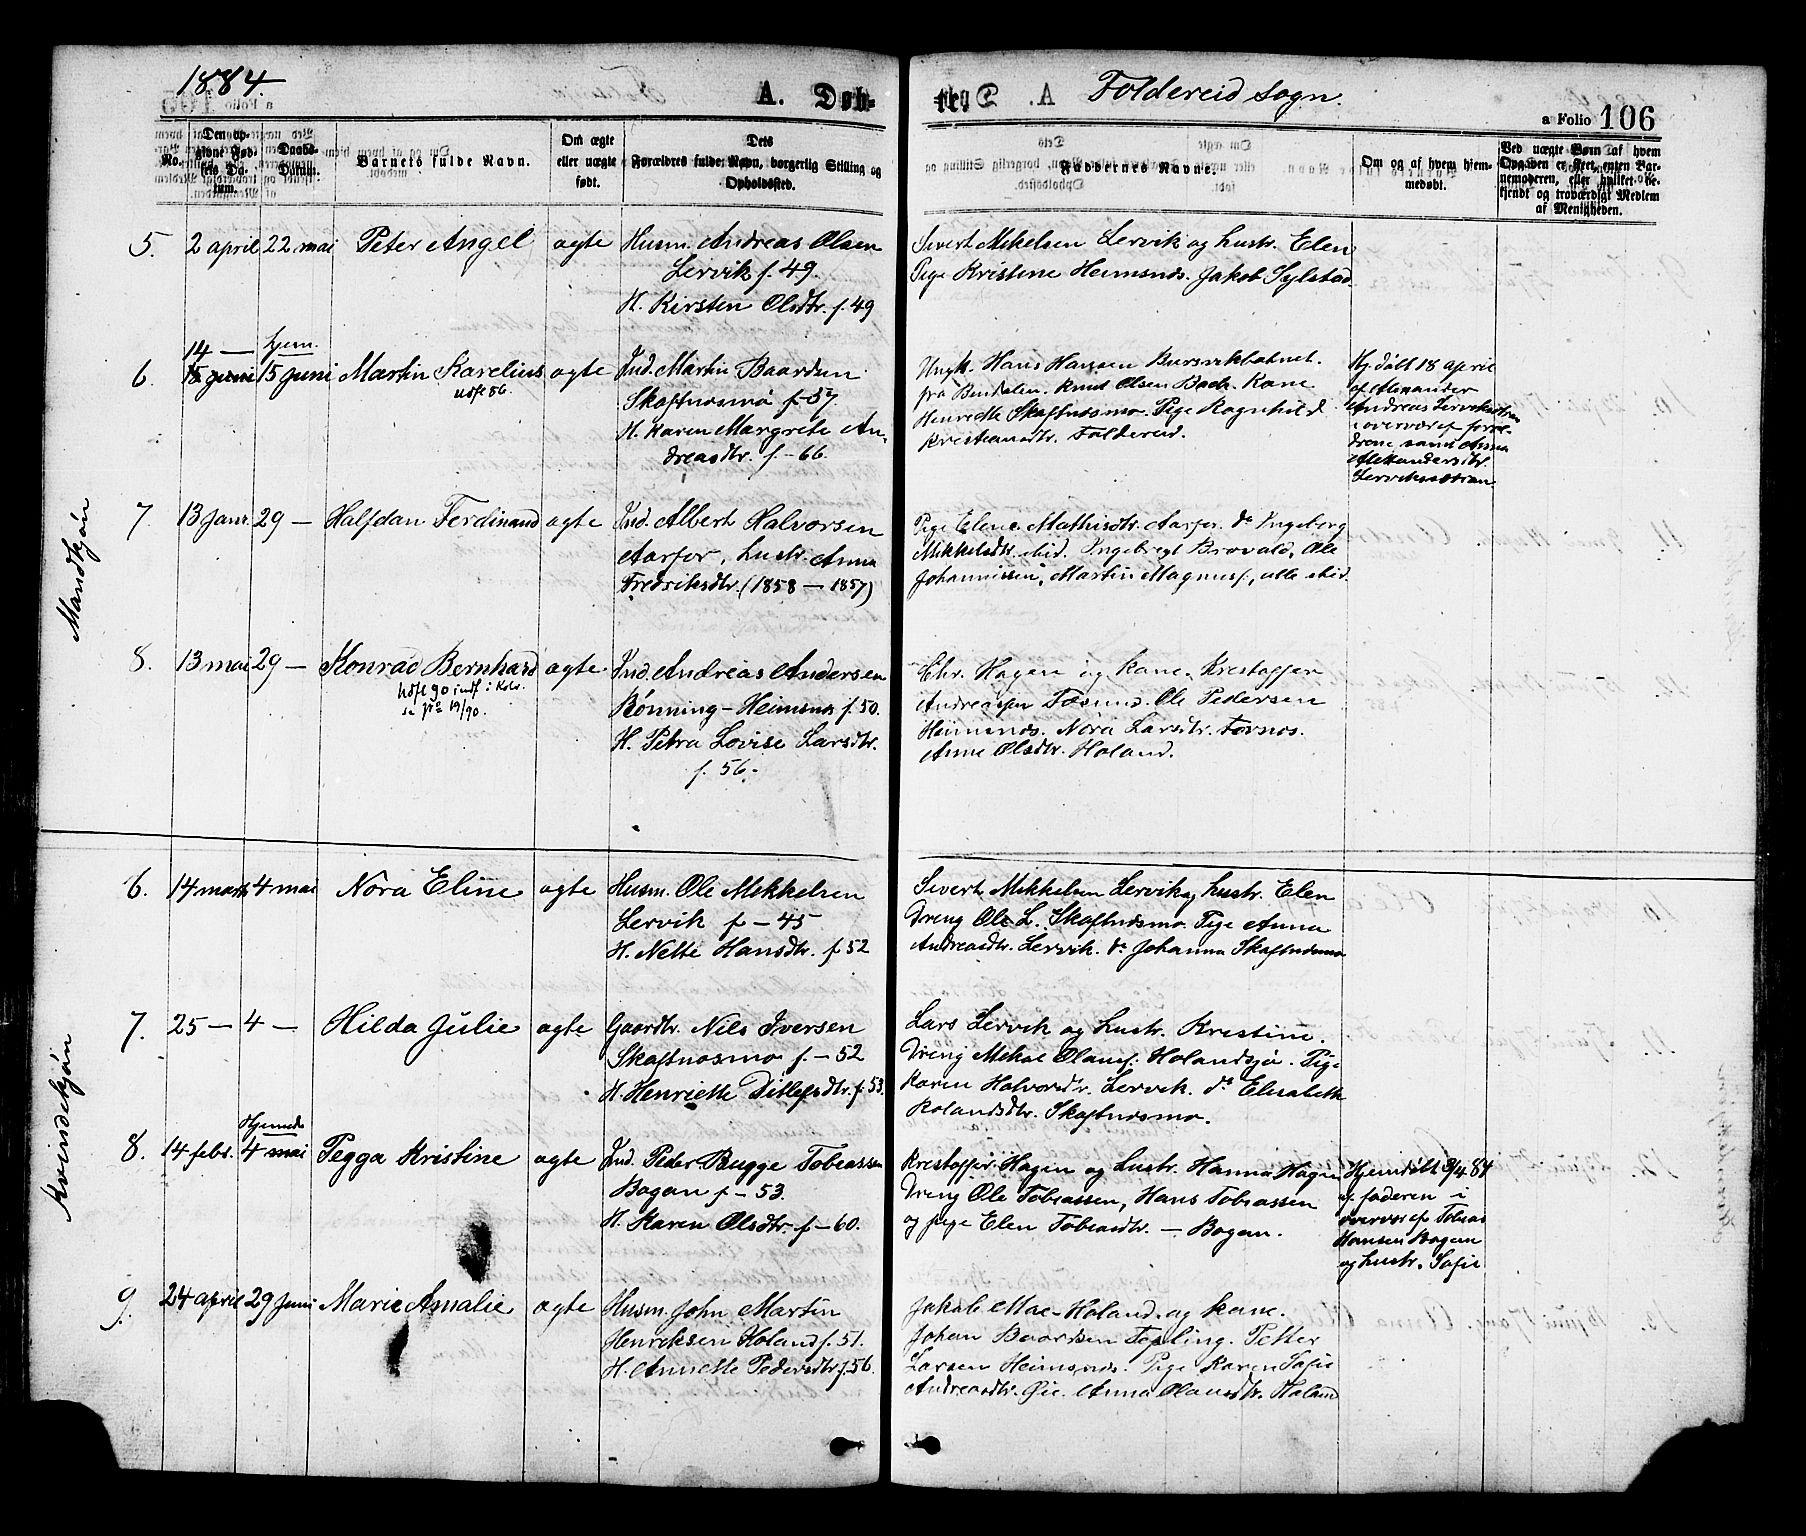 1884.
A. Døb-
te. Foldereid sogn.
a Folio 106
No.
Den opgivne Fødsels Datum.
Daabs-Datum.
Barnets fulde Navn.
Om ægte eller uægte født.
Dets Forældres fulde Navn, borgerlig Stilling og Opholdssted.
Faddernes Navne.
Om og af hvem hjemmedøbt.
Ved uægte Børn af hvem Opgaven er skeet, enten Barnemoderen, eller hvilket bekjendt og troværdigt Medlem af Menigheden.
Mandkjøn
5. 2 april 22 mai Peter Angel ægte Husm. Andreas Olsen
Lervik f. 49.
H. Kirsten Olsdtr. f. 49
Sivert Mikelsen Lervik og hustr. Elen
Pige Kristine Heimsnes. Jakob Sylstad
14 — hjem.
6. 15 juni 15 juni Martin Karelius ægte Ind. Martin Baardsen
udfl 86.
Skaftnesmo f - 57
H. Karen Margrete An-
dreasdtr. f - 66.
Ungk. Hans Hansen Bursvikbotnet.
fra Bindalen. Knut Olsen Bach. Kone
Henrette Skaftnesmo. Pige Ragnhild
Kristiansdtr. Foldereid.
Hj. døbt 18 april
af Alexander
Andreas
i overvær af foræl-
drene samt Anna
Alexandersdtr.
7. 13 janr. 29 — Halfdan Ferdinand ægte Ind. Albert Halvorsen
Aarfor, hustr. Anna
Fredriksdtr. (1858 — 1857)
Pige Elene Mathisdtr. Aarfor. do Ingeborg
Mikkelsdtr. ibid. Ingebregt Brovald, Ole
Johannissen, Martin Magnus, alle ibid.
8. 13 mai 29 — Konrad Bernhard ægte Ind. Andreas Andersen
Udfl 90 indf i Kolv.
19/90.
Rønning - Heimsnes f. 50.
H. Petra Lovise Larsdtr.
f. 56.
Chr. Hagen og Kone. Kristoffer
Andreassen Fosund. Ole Pedersen
Heimsnes. Nora Larsdtr. Tornes.
Anne Olsdtr. Holand.
Kvindekjøn
6. 14 marts 4 mai Nora Eline ægte Husm. Ole Mikkelsen
Lervik f - 45
H. Nette Hansdtr. f 52
Sivert Mikkelsen Lervik og hustr. Elen
Dreng Ole L. Skaftnesmo. Pige Anna
Andreasdtr. Lervik. do Johanna Skaftnesmo
7. 25 — 4 — Hilda Julie ægte Gaardbr. Nils Iversen
Skaftnesmo f. - 52
H. Henriette Ditlefsdtr. f. 53.
Lars Lervik og hustr. Kristine.
Dreng Mikal Olausf. Holandsjø. Pige
Karen Halvorsdtr. Lervik. do Elisabeth
Rolandsdtr. Skaftnesmo.
Hjemmedb
8. 14 febr. 4 mai Pegga Kristine ægte Ind. Peder Bugge Tobiassen
Bogan f - 53.
H. Karen Olsdtr. f - 60.
Kristoffer Hagen og Hustr. Hanna Hagen
Dreng Ole Tobiassen, Hans Tobiassen
og pige Elen Tobiasdtr. — Bogan.
Hjemdøbt 9/4 84
af faderen i
overvær af Tobias
Hansen Bogan
og hustr. Sofie
9. 24 april 29 juni Marie Amalie ægte Husm. John Martin
Henriksen Holand f. 51.
H. Annette Pedersdtr f. 56.
Jakob Moe - Holand. og Kone.
Johan Baardsen Topling. Petter
Larsen Heimsnes. Pige Karen Sofie
Andreasdtr. Øie. Anna Olausdtr. Holand